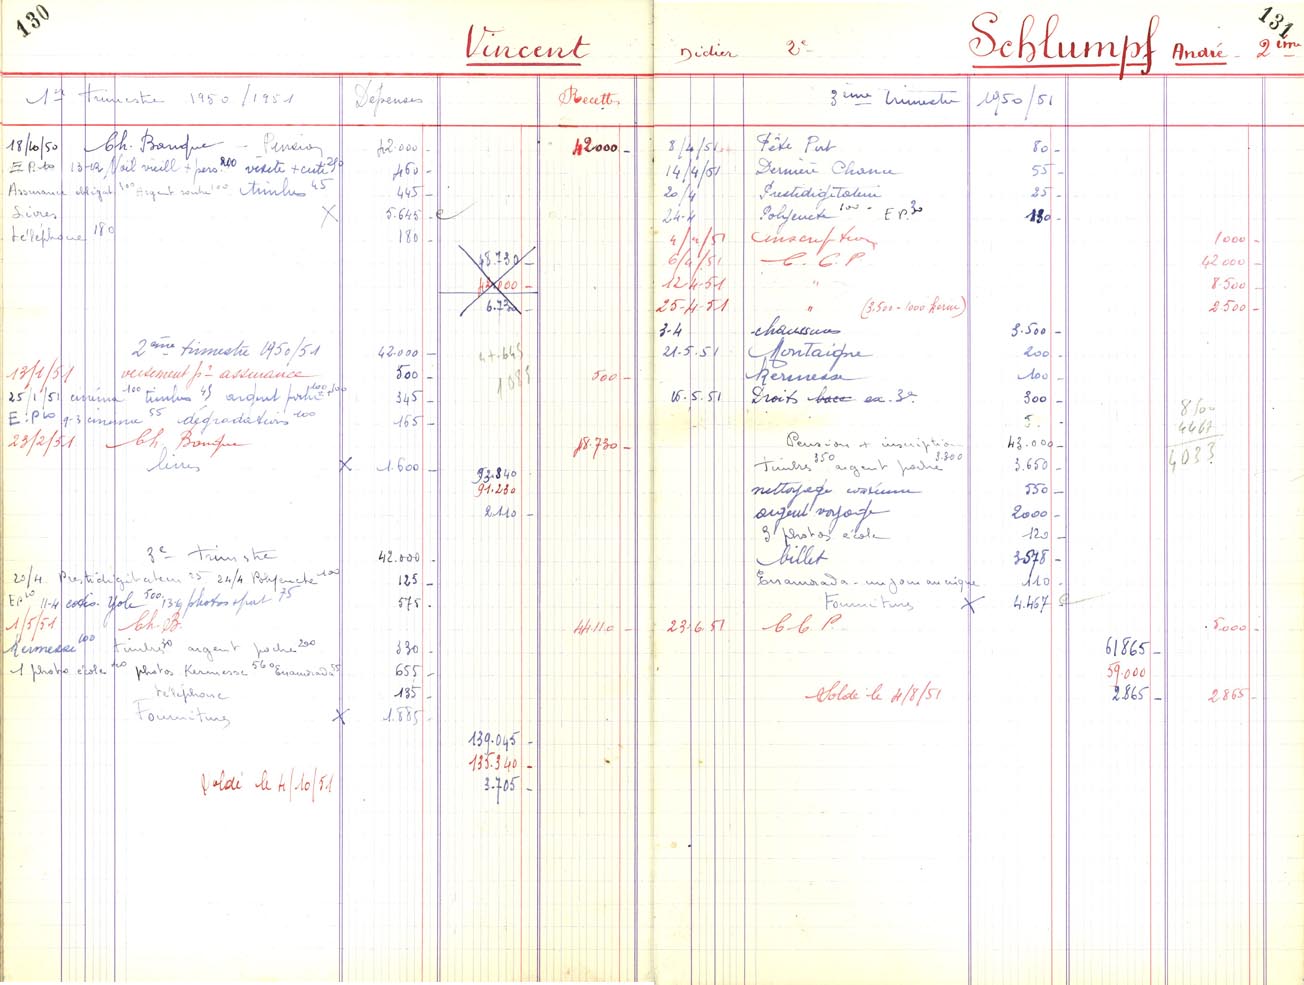 130
Vincent Didier 2e
1er trimestre 1950/1951 Dépenses Recettes
18/10/50 Ch. Banque - Pension 42.000 - 42000 -
E.P. 10 13-12 Noël vieill + pers. 200 visite + cuti 250 460 -
Assurance obligat 300 Argent route 100 timbres 45 445 -
Livres X 5.645 -
téléphone 180 180 -
48.730 -
42.000 -
6.730
2ème trimestre 1950/51 42.000 -
13/1/51 versement pr assurance 500 - 500 -
25/1/51 cinéma 100 timbres 45 argent poche 345 -
E.P. 10 9-3 cinéma 55 dégradations 100 165 -
23/2/51 Ch. Banque 48.730 -
livres X 1.600 -
93.840
91.230
2.110 -
3e trimestre 42.000 -
20/4 Prestidigitateur 25 24/4 Polyeucte 100 125 -
EP 10 11-4 cotis. Yole 500 photos sport 75 575 -
1/5/51 Ch. B. 44.110 -
Kermesse 100 timbres 30 argent poche 200 330 -
1 photo école 40 photos Kermesse 560 Enamorada 55 655 -
téléphone 135 -
Fournitures X 1.885 -
139.045 -
135.340 -
Soldé le 4/10/51 3.705 -
131
Schlumpf André 2ème
3ème trimestre 1950/51
8/4/51 Fête Put 80 -
14/4/51 Dernière Chance 55 -
20/4 Prestidigitateur 25 -
24-4 Polyeucte 100 - E.P. 30 130 -
4/4/51 inscription 1000 -
6/4/51 C.C.P. 42000 -
12-4-51 " 8.500 -
25-4-51 " (3.500 - 1000 Kerm) 2.500 -
3-4 chaussures 3.500 -
21-5.51 Montaigne 200 -
Kermesse 100 -
16-5.51 Droits bacc ex. 3e 300 -
5 -
Pension + inscription 43.000 -
timbres 350 argent poche 3.300 3.650 -
nettoyage costume 550 -
argent voyage 2000 -
3 photos école 120 -
billet 3578 -
Enamorada - un jour au cirque 110 -
Fournitures X 4.467
23-6.51 C.C.P. 5000 -
61865 -
59.000
Solde le 4/8/51 2865 - 2865 -
4467
4033